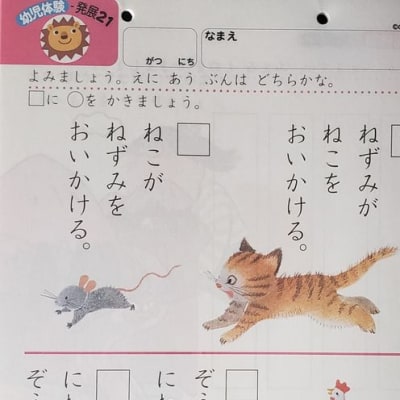 幼児体験・発展21
がつ にち
なまえ
よみましょう。えに あう ぶんは どちらかな。
□に ○を かきましょう。
ねずみが
ねこを
おいかける。
ねこが
ねずみを
おいかける。
ぞう
にわ
ぞう
にわ